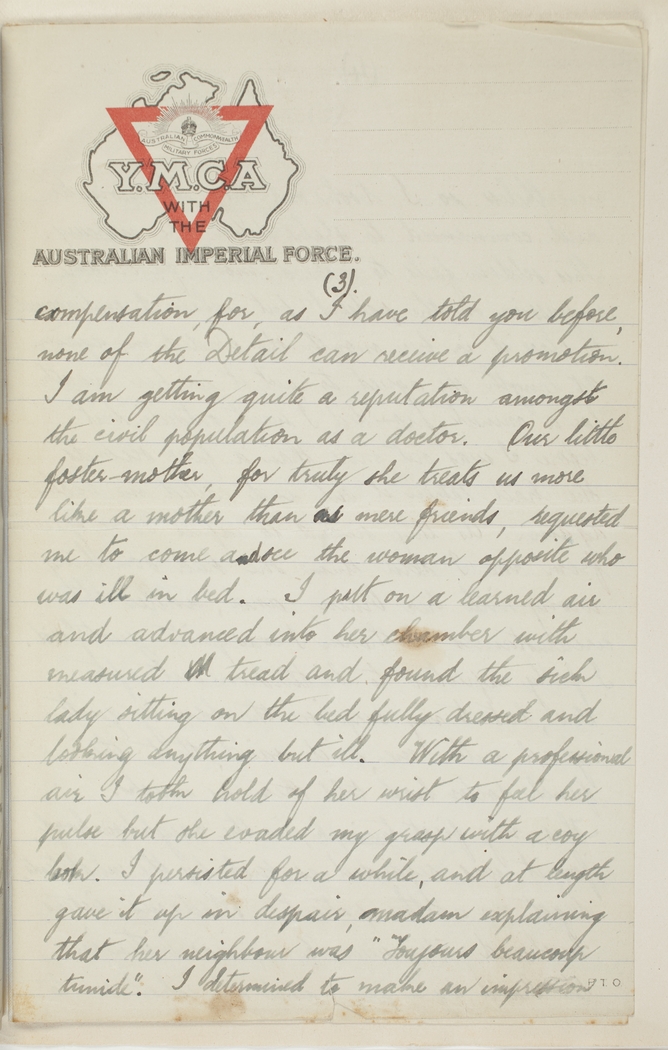 AUSTRALIAN COMMONWEALTH
MILITARY FORCES
Y.M.C.A
WITH
THE
AUSTRALIAN IMPERIAL FORCE.
(3).
compensation, for, as I have told you before,
none of the Detail can receive a promotion.
I am getting quite a reputation amongst
the civil population as a doctor. Our little
foster-mother, for truly she treats us more
like a mother than as mere friends, requested
me to come and see the woman opposite who
was ill in bed. I put on a learned air
and advanced into her chamber with
measured tread and found the sick
lady sitting on the bed fully dressed and
looking anything but ill. With a professional
air I took hold of her wrist to feel her
pulse but she evaded my grasp with a coy
look. I persisted for a while, and at length
gave it up in despair, madam explaining
that her neighbour was "Toujours beaucoup
timide". I determined to make an impression
P T O